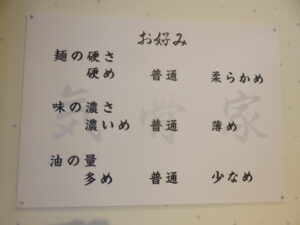 お好み
麺の硬さ
硬め 普通 柔らかめ
味の濃さ
濃いめ 普通 薄め
油の量
多め 普通 少なめ
気骨家